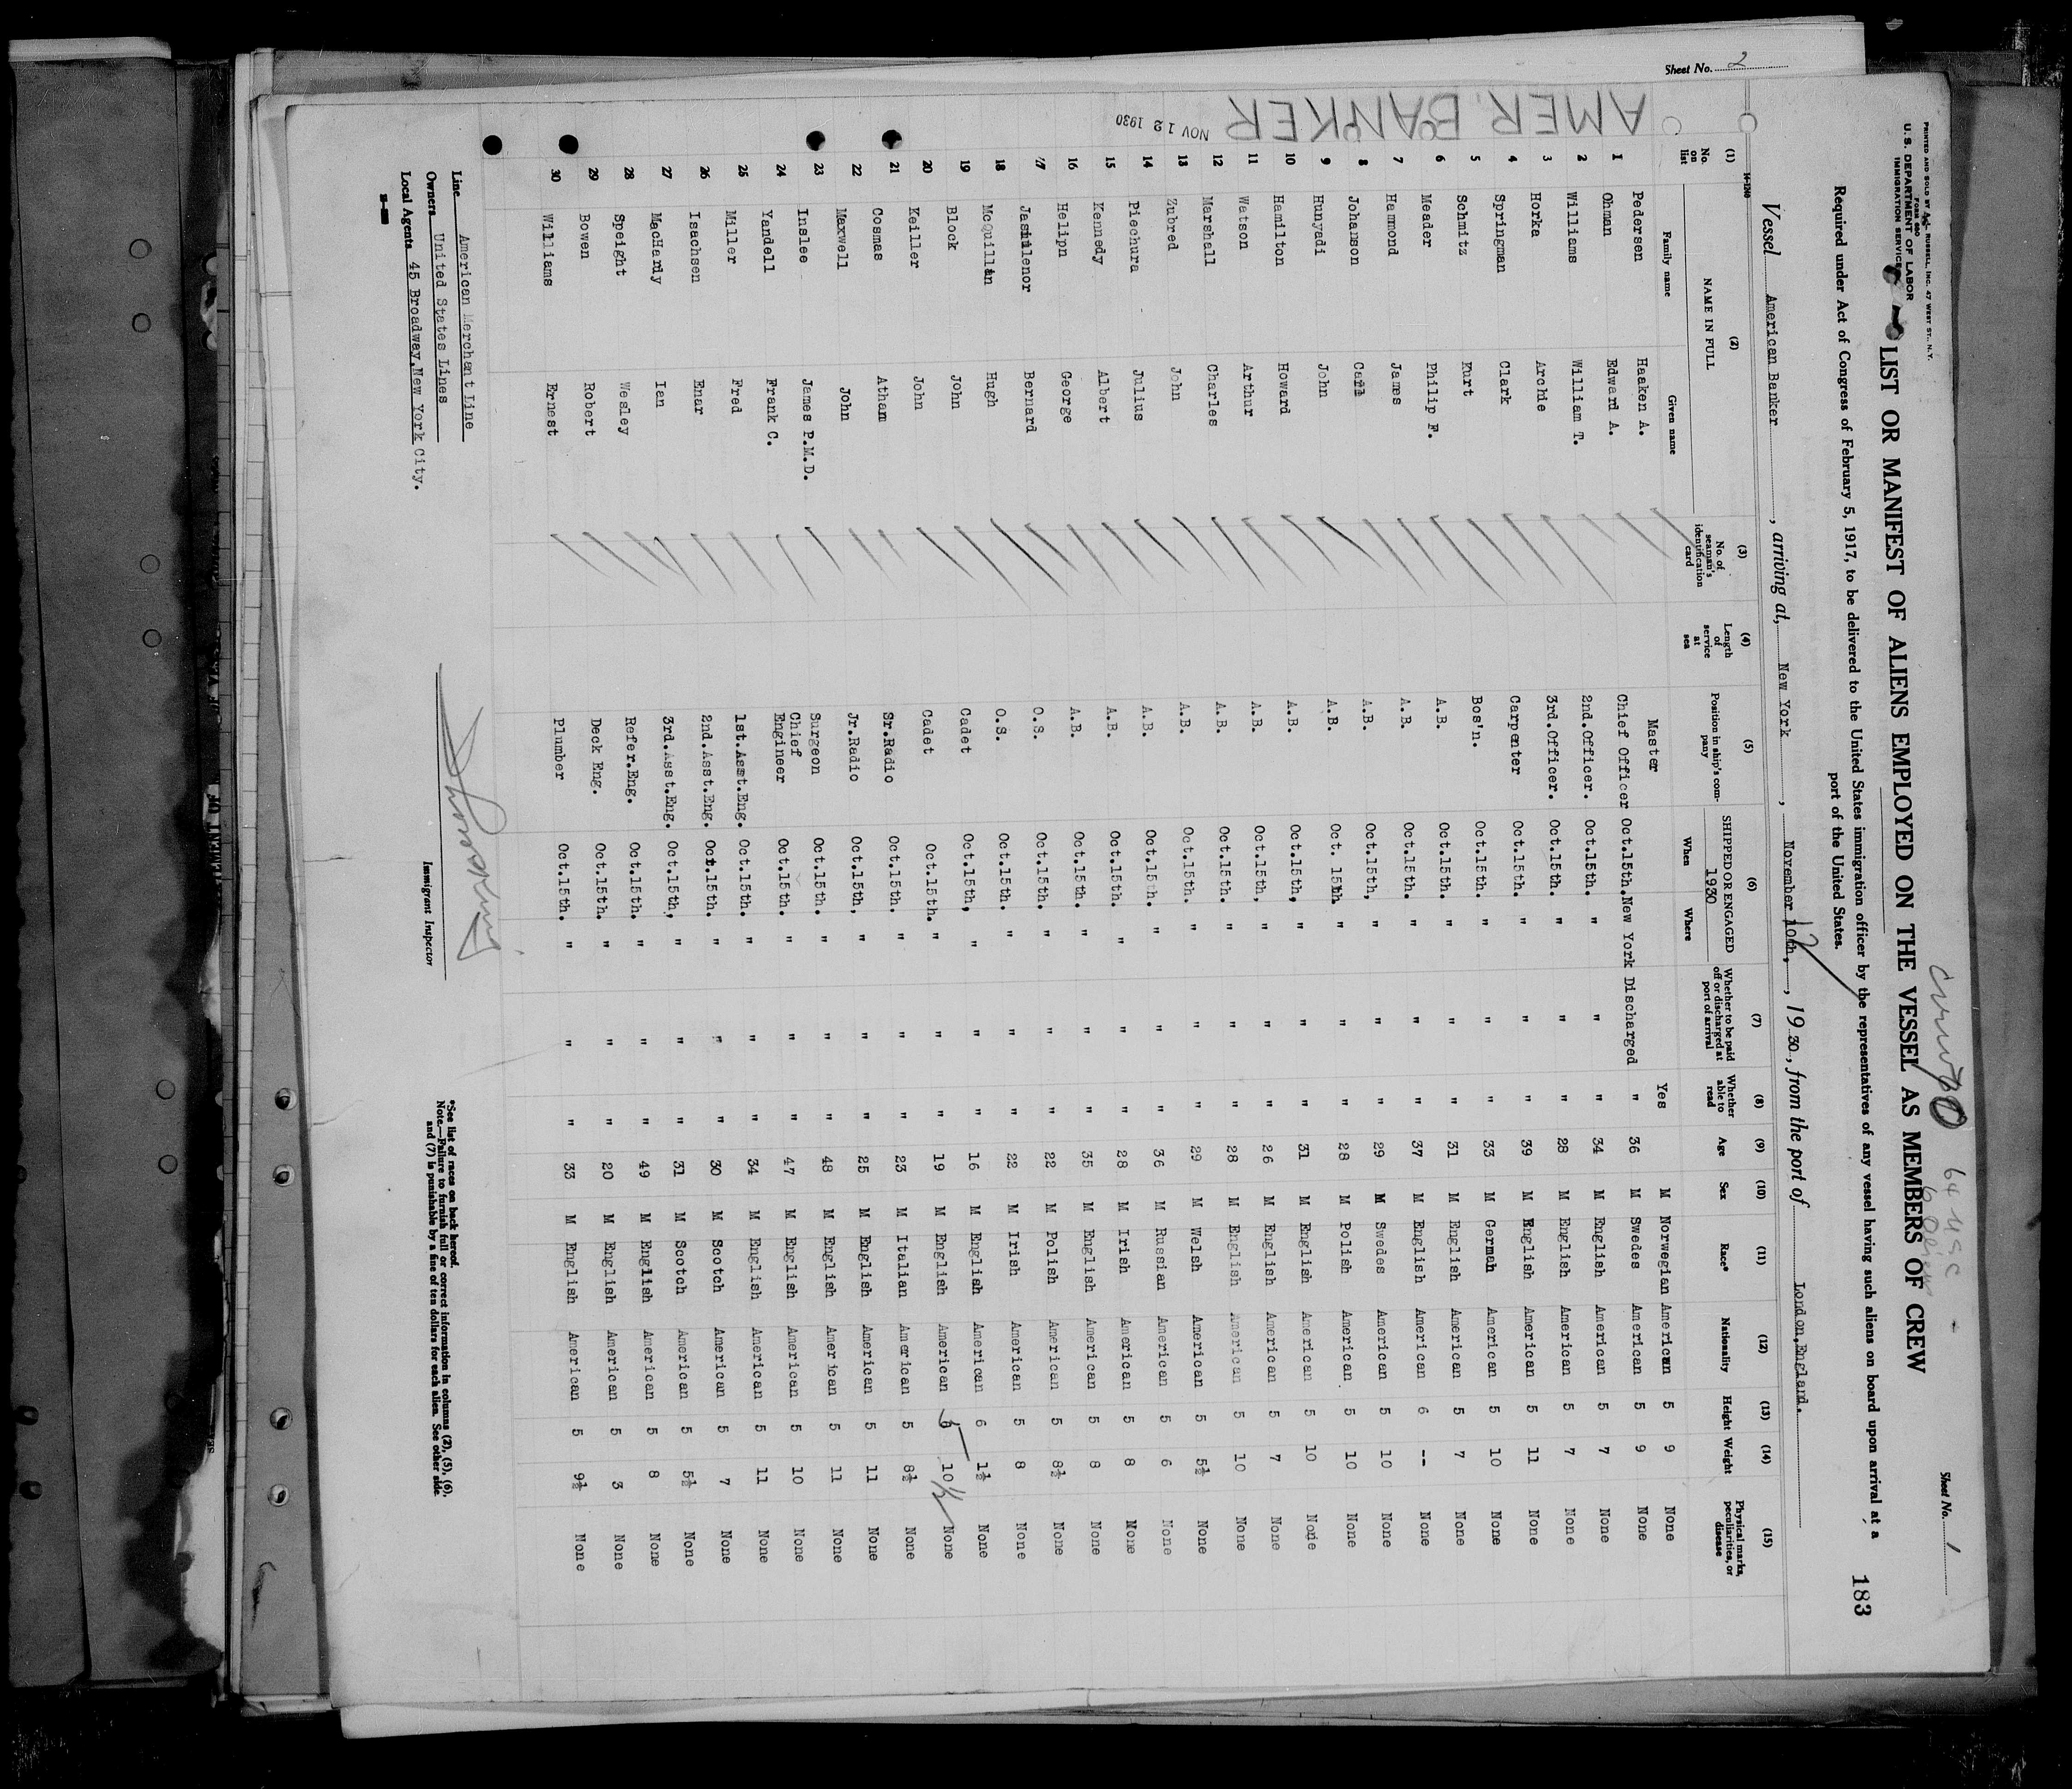 Sheet No. 2
Sheet No. 1
64 USC
PRINTED AND SOLD BY RUSSELL, INC. 47 WEST ST., N.Y.
U.S. DEPARTMENT OF LABOR
IMMIGRATION SERVICE
LIST OR MANIFEST OF ALIENS EMPLOYED ON THE VESSEL AS MEMBERS OF CREW
183
Required under Act of Congress of February 5, 1917, to be delivered to the United States immigration officer by the representatives of any vessel having such aliens on board upon arrival at a port of the United States.
Vessel American Banker, arriving at, New York, November 10th, 12, 1930, from the port of London,England.
AMER. BANKER
NOV 12 1930
(1) No. on list (2) NAME IN FULL Family name Given name (3) No. of seaman's identification card (4) Length of service at sea (5) Position in ship's company (6) SHIPPED OR ENGAGED 1930 When Where (7) Whether to be paid off or discharged at port of arrival (8) Whether able to read (9) Age (10) Sex (11) Race* (12) Nationality (13) Height (14) Weight (15) Physical marks, peculiarities, or disease
Pedersen Haaken A. Master Yes M Norwegian American 5 9 None
1 Ohman Edward A. Chief Officer Oct.15th. New York Discharged " 36 M Swedes American 5 9 None
2 Williams William T. 2nd.Officer. Oct.15th. " " " 34 M English American 5 7 None
3 Horka Archie 3rd.Officer. Oct.15th. " " " 28 M English American 5 7 None
4 Springman Clark Carpenter Oct.15th. " " " 39 M English American 5 11 None
5 Schmitz Kurt Bos'n. Oct.15th. " " " 33 M German American 5 10 None
6 Meader Philip F. A.B. Oct.15th. " " " 31 M English American 5 7 None
7 Hammond James A.B. Oct.15th. " " " 37 M English American 6 -- None
8 Johanson Carl A.B. Oct.15th, " " " 29 M Swedes American 5 10 None
9 Hunyadi John A.B. Oct. 15th. " " " 28 M Polish American 5 10 None
10 Hamilton Howard A.B. Oct.15th, " " " 31 M English American 5 10 None
11 Watson Arthur A.B. Oct.15th, " " " 26 M English American 5 7 None
12 Marshall Charles A.B. Oct.15th. " " " 28 M English American 5 10 None
13 Zubred John A.B. Oct.15th. " " " 29 M Welsh American 5 5½ None
14 Piechura Julius A.B. Oct.15th. " " " 36 M Russian American 5 6 None
15 Kennedy Albert A.B. Oct.15th. " " " 28 M Irish American 5 8 None
16 Helipn George A.B. Oct.15th. " " " 35 M English American 5 8 None
17 Jasmilenor Bernard O.S. Oct.15th. " " " 22 M Polish American 5 8½ None
18 McQuillan Hugh O.S. Oct.15th. " " " 22 M Irish American 5 8 None
19 Block John Cadet Oct.15th, " " " 16 M English American 6 1½ None
20 Keiller John Cadet Oct.15th. " " " 19 M English American 5 10½ None
21 Cosmas Atham Sr.Radio Oct.15th. " " " 23 M Italian American 5 8½ None
22 Maxwell John Jr.Radio Oct.15th, " " " 25 M English American 5 11 None
23 Inslee James P.M.D. Surgeon Oct.15th. " " " 48 M English American 5 11 None
24 Yandell Frank C. Chief Engineer Oct.15th. " " " 47 M English American 5 10 None
25 Miller Fred 1st.Asst.Eng. Oct.15th. " " " 34 M English American 5 11 None
26 Isachsen Enar 2nd.Asst.Eng. Oct.15th. " " " 30 M Scotch American 5 7 None
27 MacHardy Ian 3rd.Asst.Eng. Oct.15th, " " " 31 M Scotch American 5 5½ None
28 Speight Wesley Refer.Eng. Oct.15th. " " " 49 M English American 5 8 None
29 Bowen Robert Deck Eng. Oct.15th. " " " 20 M English American 5 3 None
30 Williams Ernest Plumber Oct.15th. " " " 33 M English American 5 9½ None
Line American Merchant Line
Owners United States Lines
Local Agents 45 Broadway,New York City.
Immigrant Inspector
*See list of races on back hereof.
Note.—Failure to furnish full or correct information in columns (2), (5), (6), and (7) is punishable by a fine of ten dollars for each alien. See other side.